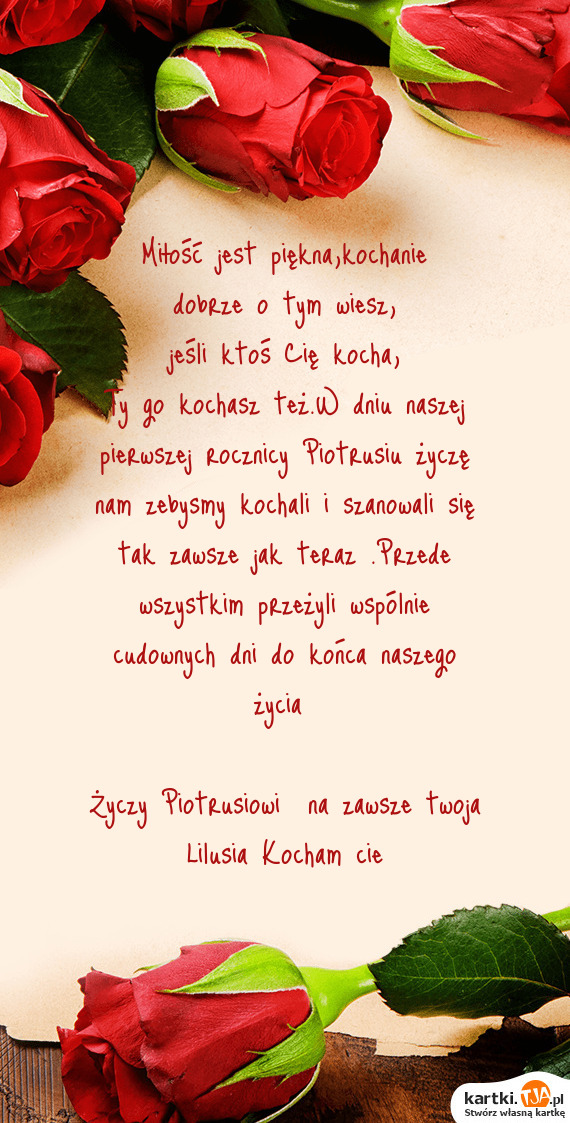 Miłość jest piękna,kochanie
dobrze o tym wiesz,
jeśli ktoś Cię kocha,
Ty go kochasz też.W dniu naszej
pierwszej rocznicy Piotrusiu życzę
nam zebysmy kochali i szanowali się
tak zawsze jak teraz .Przede
wszystkim przeżyli wspólnie
cudownych dni do końca naszego
życia
Życzy Piotrusiowi na zawsze twoja
Lilusia Kocham cie
kartki.TJA.pl
Stwórz własną kartkę